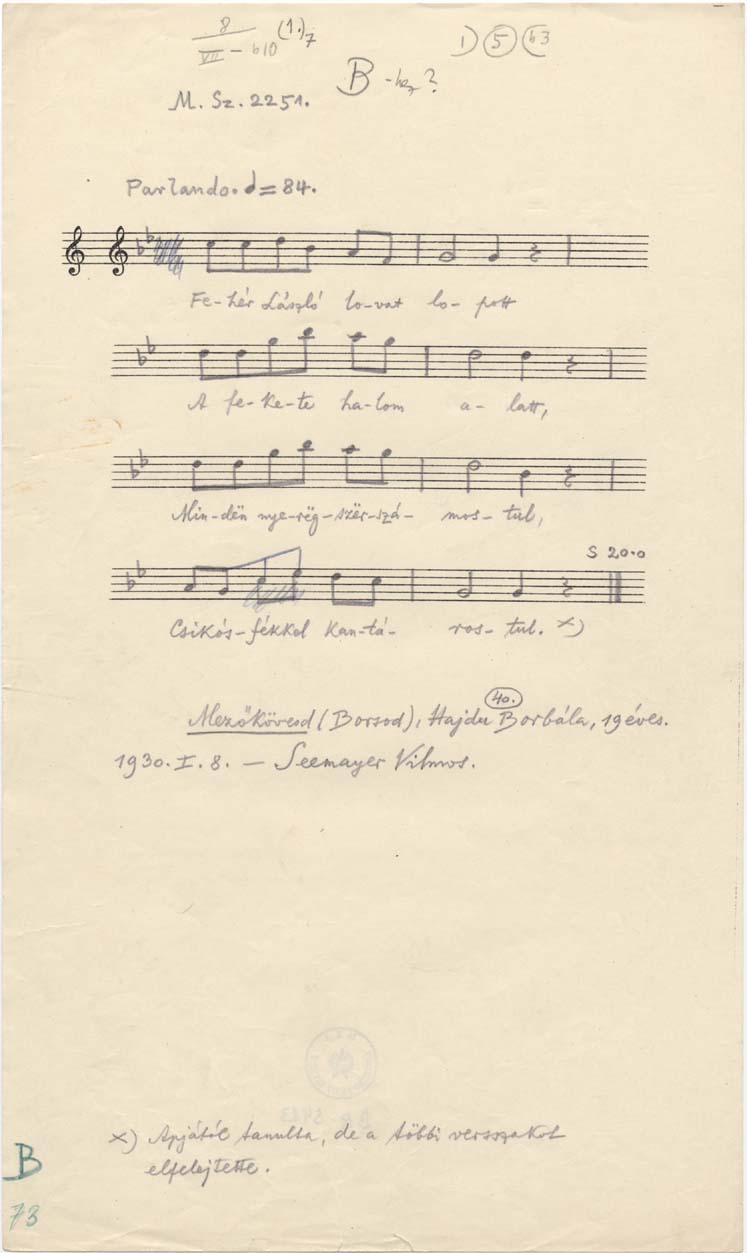 8 (1.)7
VII - 610
1) 5 63
B -hez?
M. Sz. 2251.
Parlando. = 84.
Fe-hér László lo-vat lo- pott
A fe-ke-te ha-lom a- latt,
Min-dën nye-rëg-szër-szá- mos- tul,
S 20.0
Csikós-fékkel kan-tá- ros- tul. x)
40.
Mezőkövesd (Borsod), Hajdu Borbála, 19 éves.
1930. I. 8. — Seemayer Vilmos.
x) Apjától tanulta, de a többi versszakot
elfelejtette.
B
73